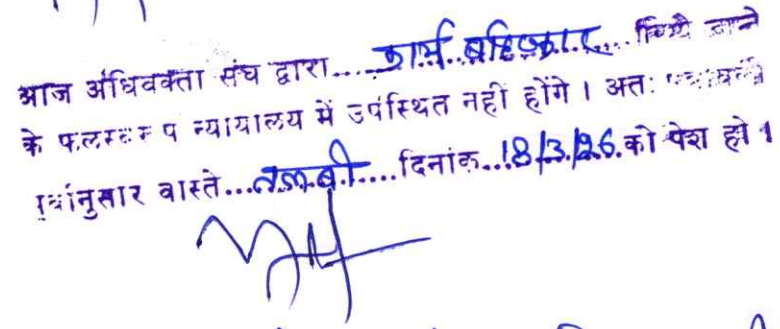 आज अधिवक्ता संघ द्वारा.....कार्य बहिष्कार.....किये जाने
के फलस्वरूप न्यायालय में उपस्थित नहीं होंगे । अतः पत्रावली
पूर्वानुसार वास्ते...तलबी....दिनांक..18/3/26.को पेश हो ।